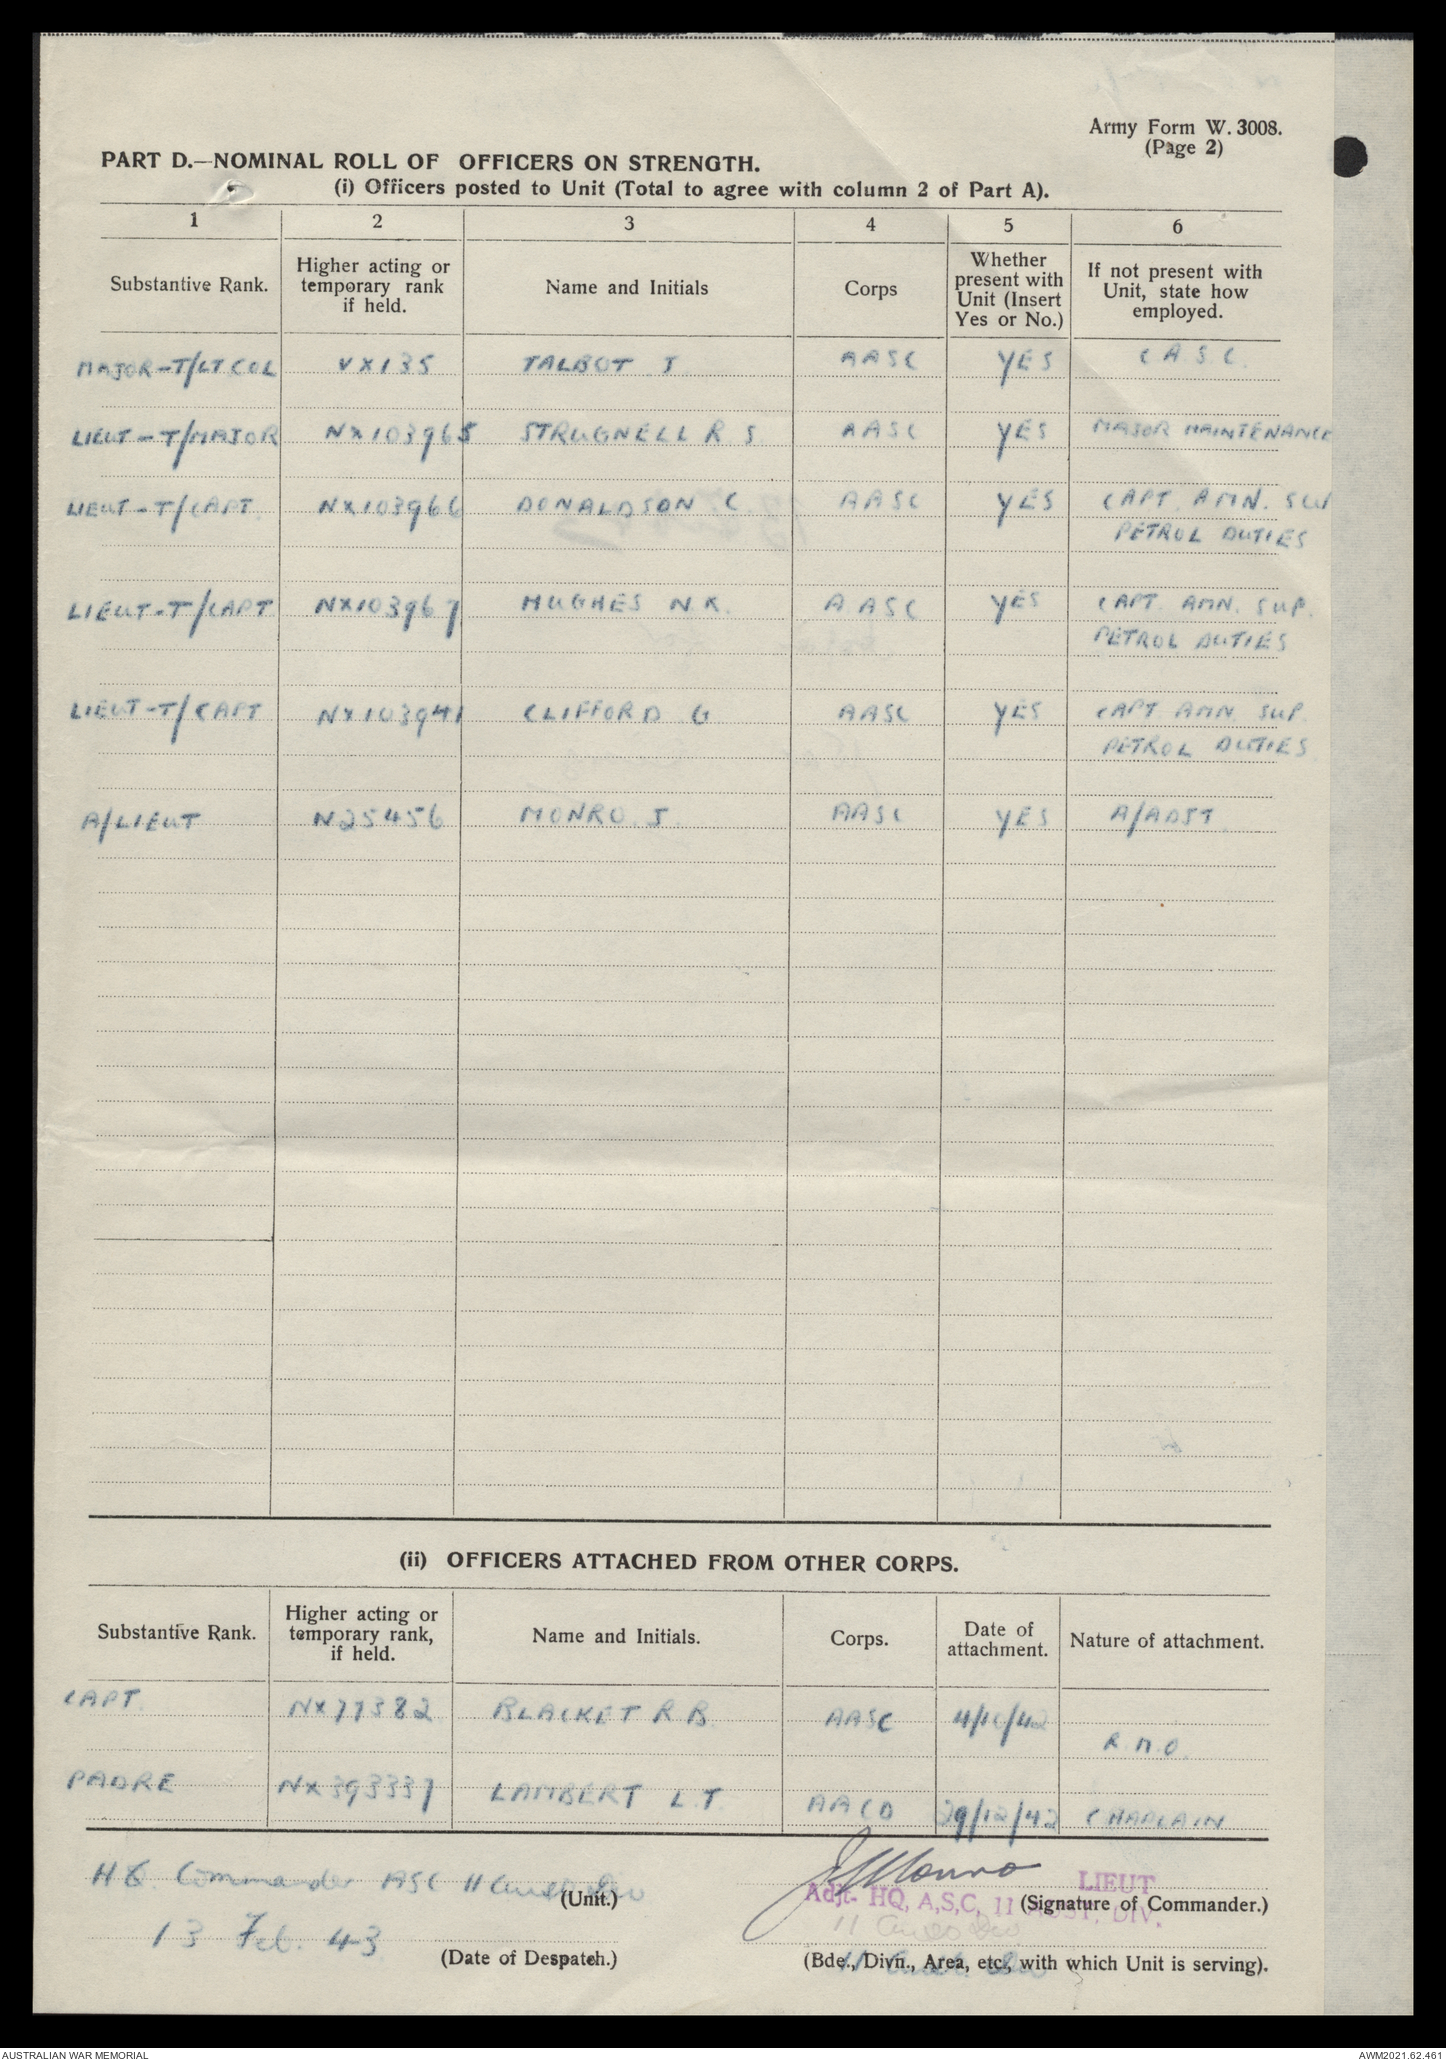 Army Form W. 3008.
(Page 2)
PART D.—NOMINAL ROLL OF OFFICERS ON STRENGTH.
(i) Officers posted to Unit (Total to agree with column 2 of Part A).
1 2 3 4 5 6
Substantive Rank. Higher acting or temporary rank if held. Name and Initials Corps Whether present with Unit (Insert Yes or No.) If not present with Unit, state how employed.
MAJOR-T/LT COL VX135 TALBOT J AASC YES C.A.S.C.
LIEUT-T/MAJOR NX103965 STRUGNELL R.S. AASC YES MAJOR MAINTENANCE
LIEUT-T/CAPT. NX103966 DONALDSON C. AASC YES CAPT. AMN. SUP
PETROL DUTIES
LIEUT-T/CAPT NX103967 HUGHES N.K. AASC YES CAPT. AMN. SUP.
PETROL DUTIES
LIEUT-T/CAPT NX103941 CLIFFORD G AASC YES CAPT. AMN. SUP.
PETROL DUTIES
A/LIEUT N25456 MONRO J. AASC YES A/ADJT.
(ii) OFFICERS ATTACHED FROM OTHER CORPS.
Substantive Rank. Higher acting or temporary rank, if held. Name and Initials. Corps. Date of attachment. Nature of attachment.
CAPT. NX77382 BLACKET R B AASC 4/10/42
R.M.O.
PADRE NX393337 LAMBERT L.T. AACD 29/12/42 CHAPLAIN
HQ Commander ASC 11 Aust Div (Unit.)
J Monro LIEUT
Adjt. HQ, A,S,C, 11 AUST. DIV. (Signature of Commander.)
11 Aust Div
13 Feb. 43 (Date of Despatch.)
11 Aust. Div
(Bde., Divn., Area, etc., with which Unit is serving).
AUSTRALIAN WAR MEMORIAL AWM2021.62.461